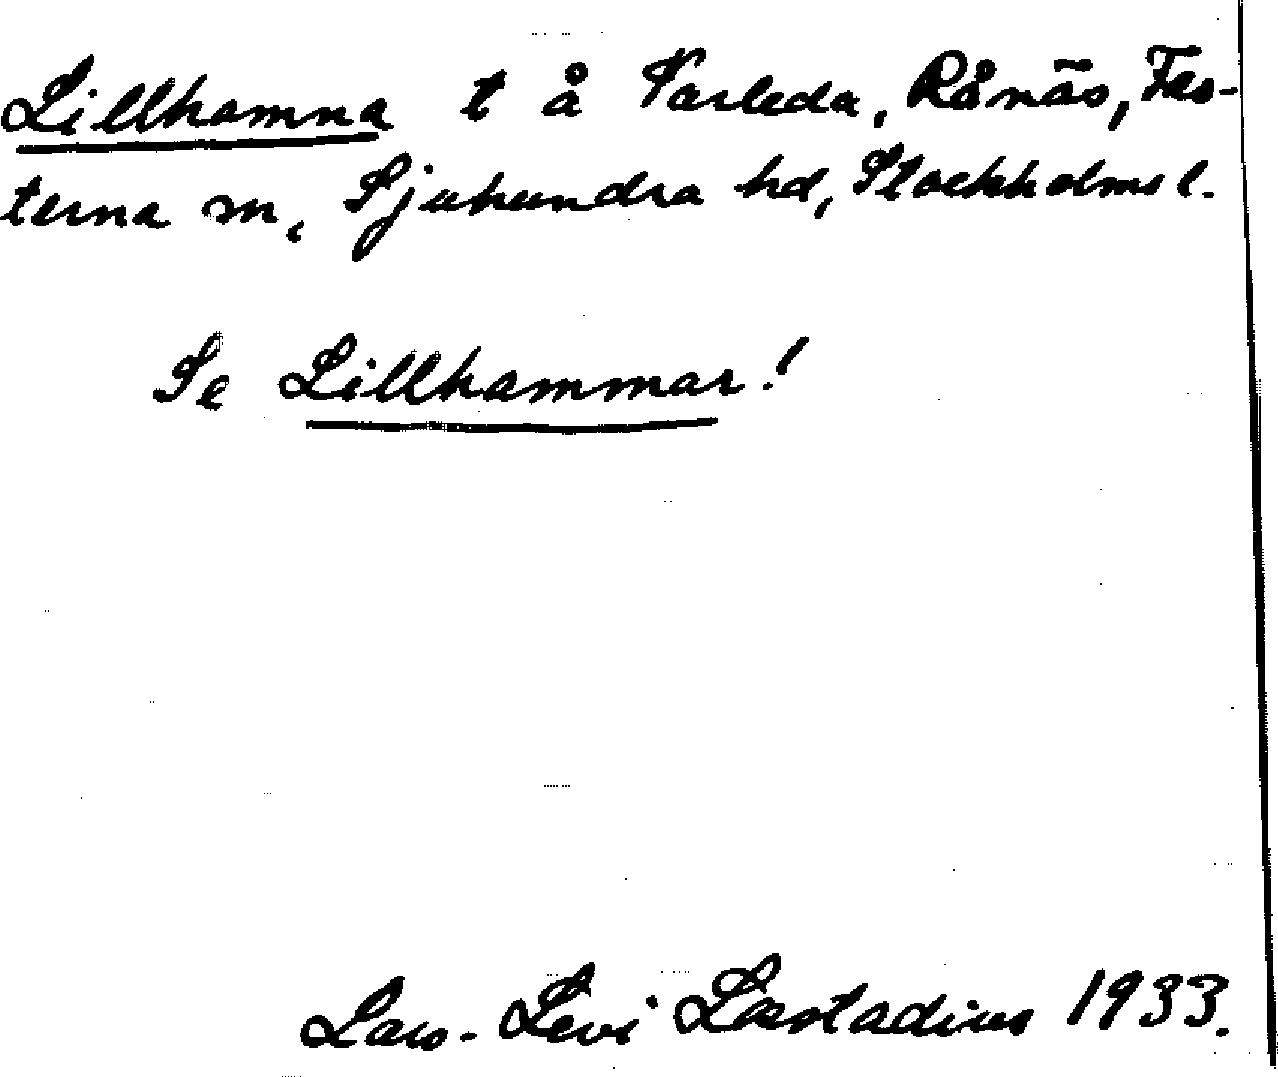 Lillhamna t å Varleda, Rånäs, Fas-
terna sn, Sjuhundra hd, Stockholms l.
Se Lillhammar!
Lars-Levi Læstadius 1933.